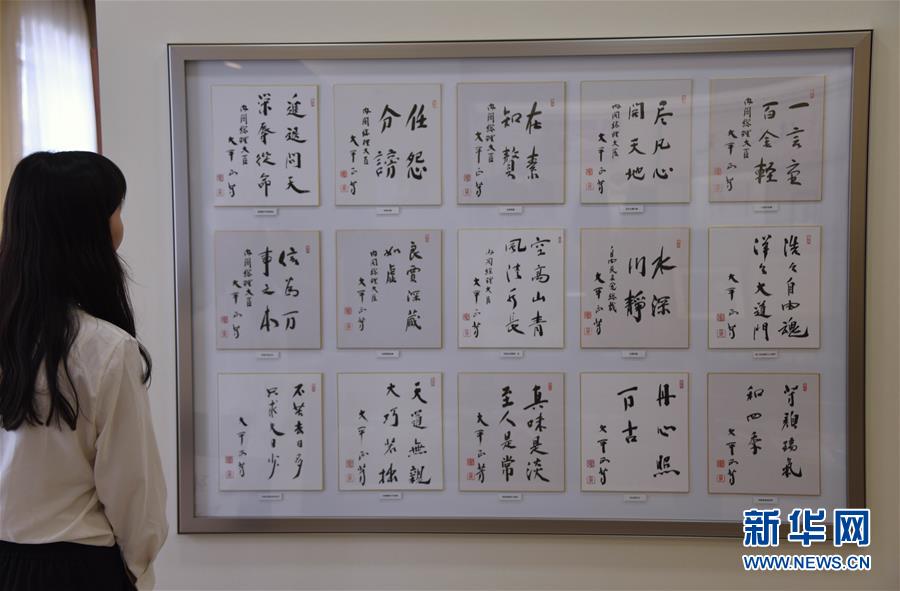 進退問天
栄辱従命
内閣総理大臣
大平正芳
任怨
分謗
内閣総理大臣
大平正芳
在素
知贅
内閣総理大臣
大平正芳
尽凡心
天地
内閣総理大臣
大平正芳
一言重
百金軽
内閣総理大臣
大平正芳
信為万
事之本
内閣総理大臣
大平正芳
良賈深蔵
如虚
内閣総理大臣
大平正芳
空高山青
風清
内閣総理大臣
大平正芳
水深
川静
自由民主党総裁
大平正芳
浩々自由魂
洋々大道門
大平正芳
去日多
日少
大平正芳
天道無親
大巧若拙
大平正芳
真味是淡
至人是常
大平正芳
丹心照
万古
大平正芳
瑞気
和四季
大平正芳
新华网
WWW.NEWS.CN